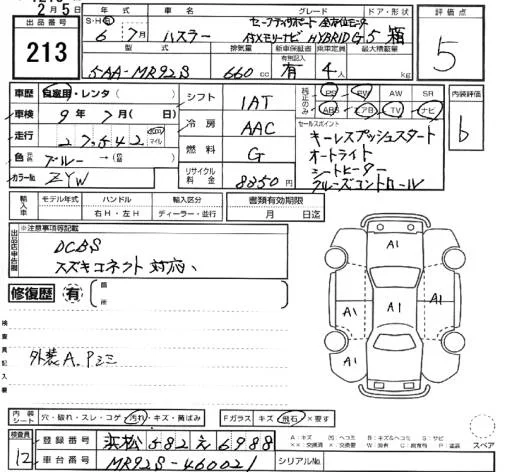 2月5日
出品番号 213
年式 車名 グレード ドア・形状 評価点
S・H・R 6年 7月 ハスラー セーフティサポート 全方位モニター
付メモリーナビ HYBRID G 5 箱 5
型式 排気量 新車保証書 乗車定員 最大積載量
有無記入
5AA-MR92S 660 cc 有 4人 kg
車歴 自家用・レンタ( ) シフト 1AT PS PW AW SR 内装評価
車検 9年 7月( 日) ABS エアB TV ナビ b
冷房 AAC セールスポイント
走行 27,542 km マイル キーレスプッシュスタート
オートライト
色 ブルー →( ) 燃料 G シートヒーター
カラーNo ZYW リサイクル料金 8350円 クルーズコントロール
輸入車 モデル年式 ハンドル 輸入区分 書類有効期限
年 右H・左H ディーラー・並行 月 日迄
※注意事項等記載
出品店申告欄
DCBS
スズキコネクト対応、
修復歴 有 箇所
A1
A1 A1 A1
A1
検査員記入
外装A,Pミミ
内装シート 穴・破れ・スレ・コゲ・汚れ・キズ・黄ばみ Fガラス キズ・飛石・×要す
検査員 12
登録番号 浜松 582 え 6988
車台番号 MR92S-460021 シリアルNo.
A:キズ U:ヘコミ B:キズ&ヘコミ S:サビ
スペア